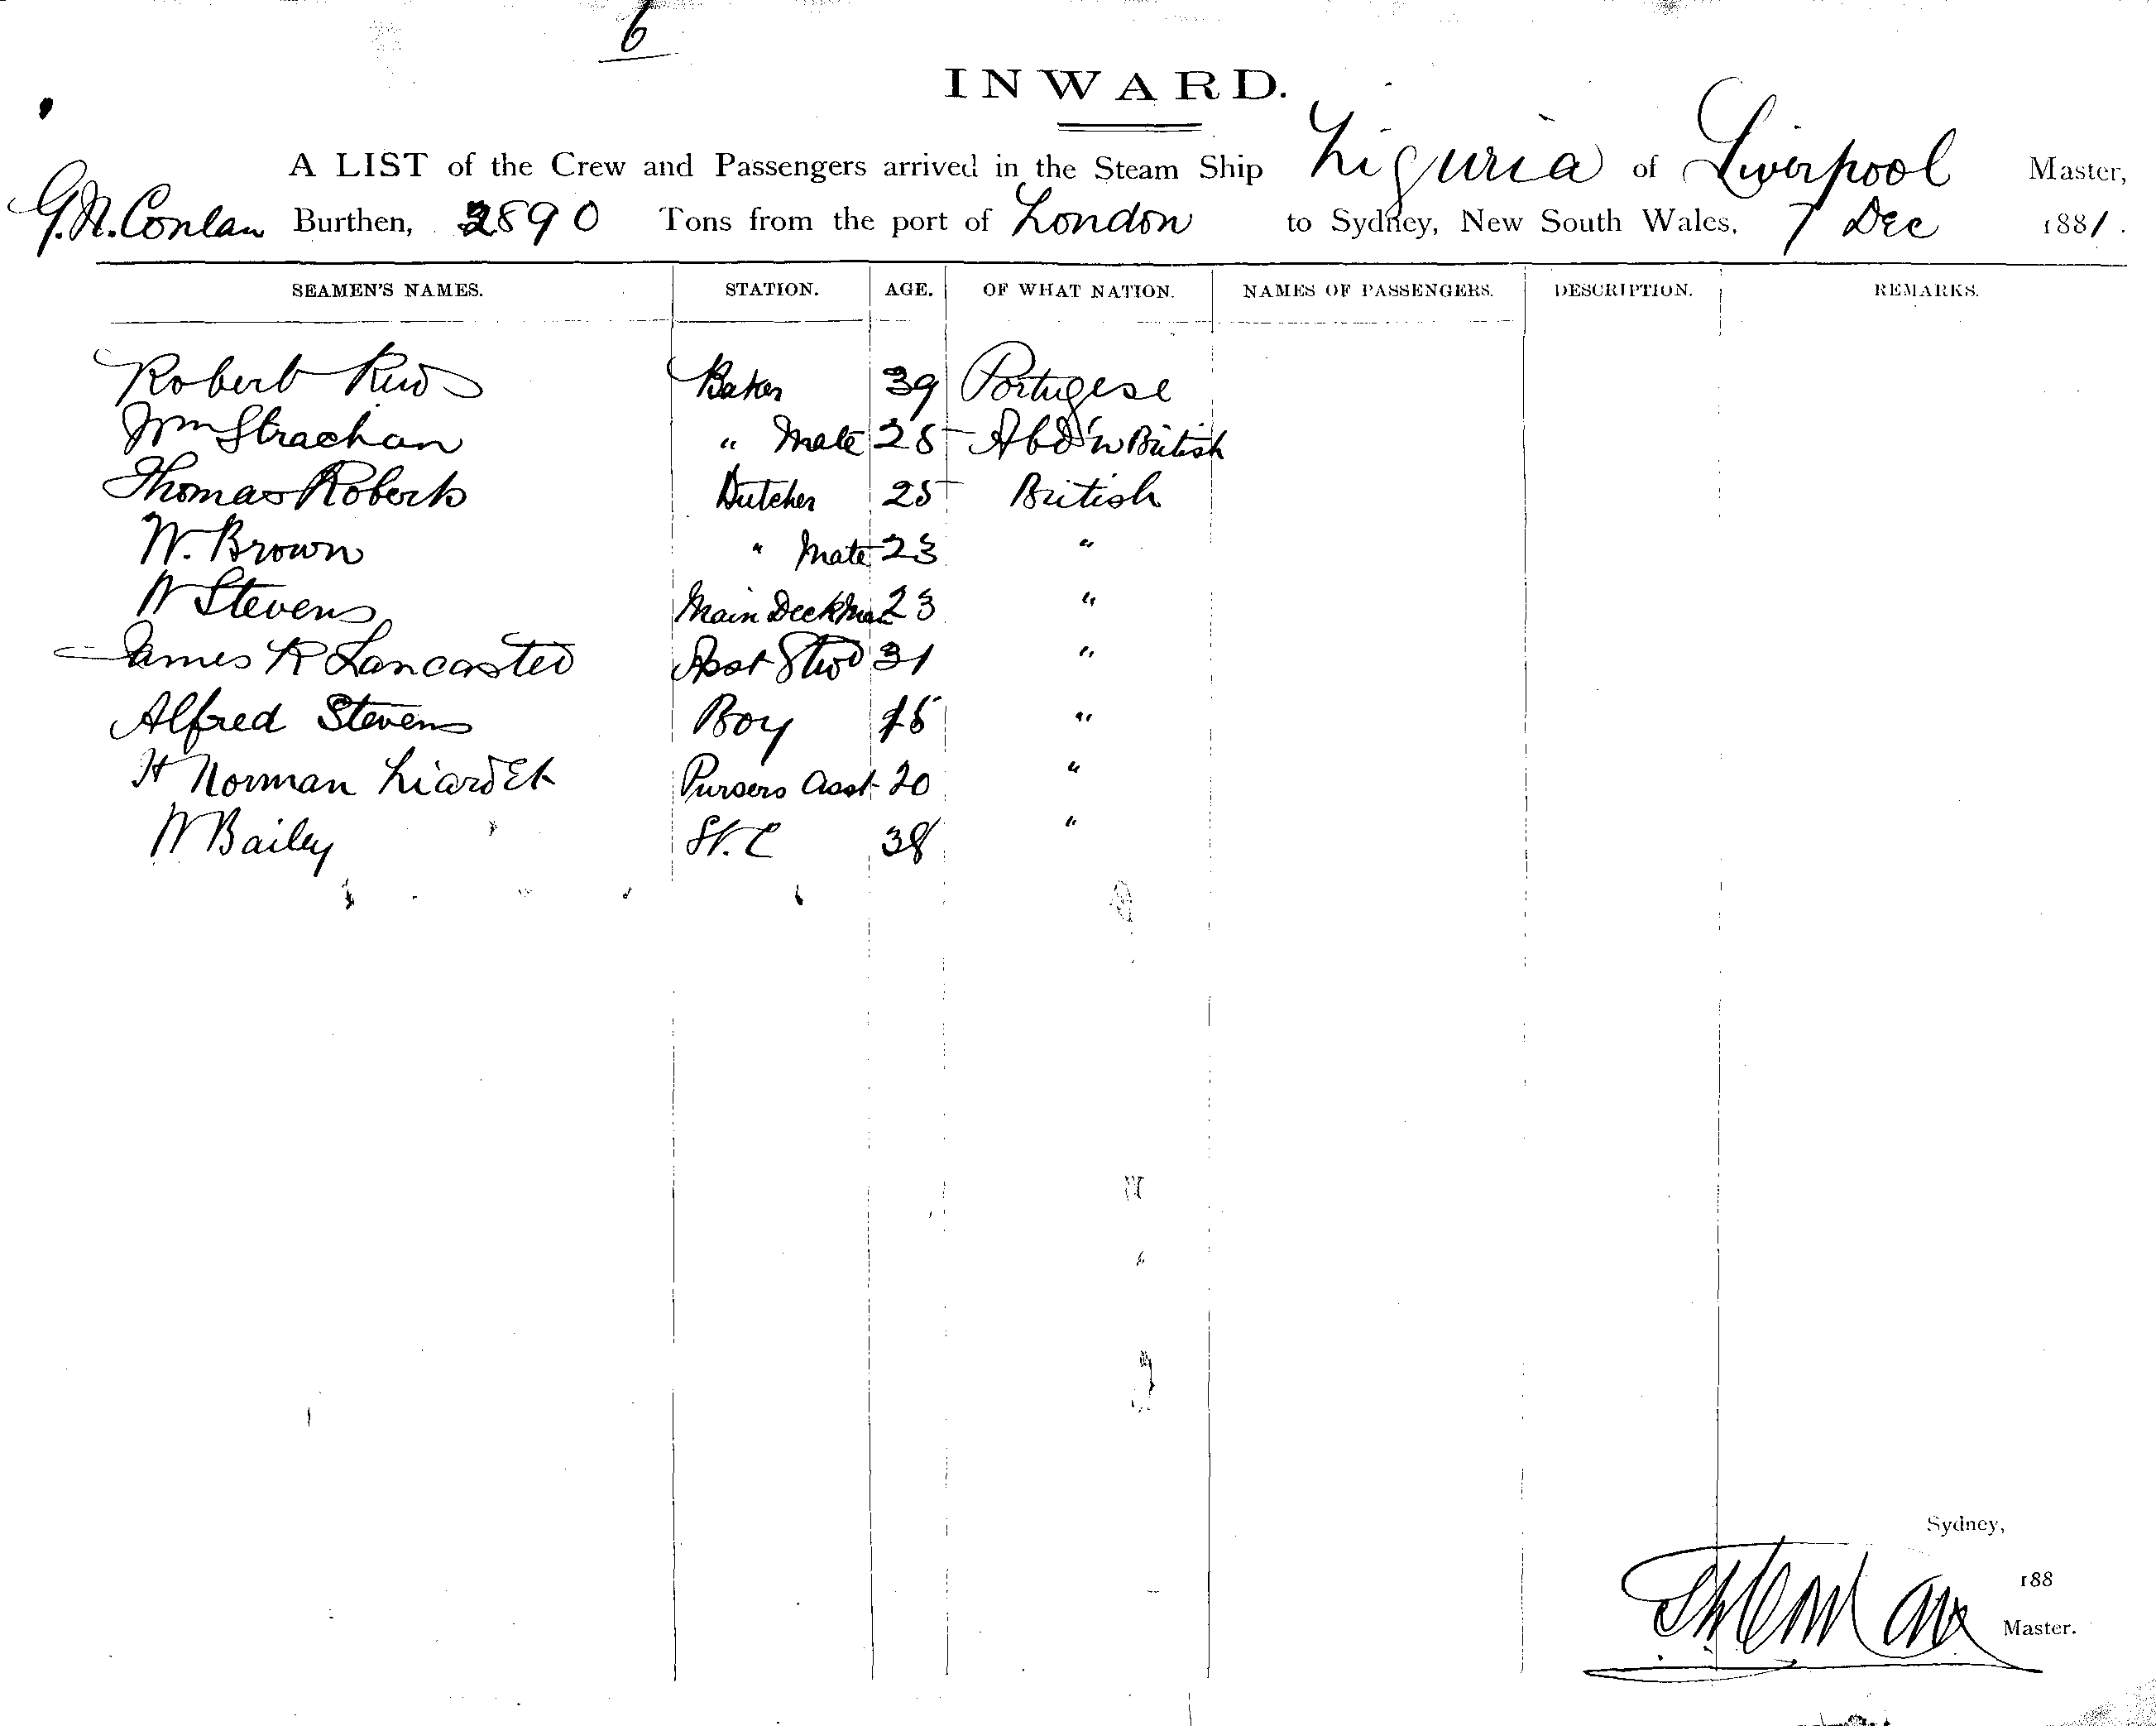 6
INWARD.
A LIST of the Crew and Passengers arrived in the Steam Ship Liguria of Liverpool Master,
G.N. Conlan Burthen, 2890 Tons from the port of London to Sydney, New South Wales, 7 Dec 1881.
SEAMEN'S NAMES. STATION. AGE. OF WHAT NATION. NAMES OF PASSENGERS. DESCRIPTION. REMARKS.
Robert Baker 39 Portugese
Wm Strachan " Mate 25 British
Thomas Roberts Butcher 25 British
W. Brown " Mate 23 "
W Stevens Main Deckman 23 "
James R Lancaster Asst Stwd 31 "
Alfred Stevens Boy 15 "
H Norman Liardet Pursers Asst 20 "
W Bailey 38 "
Sydney,
188
Master.